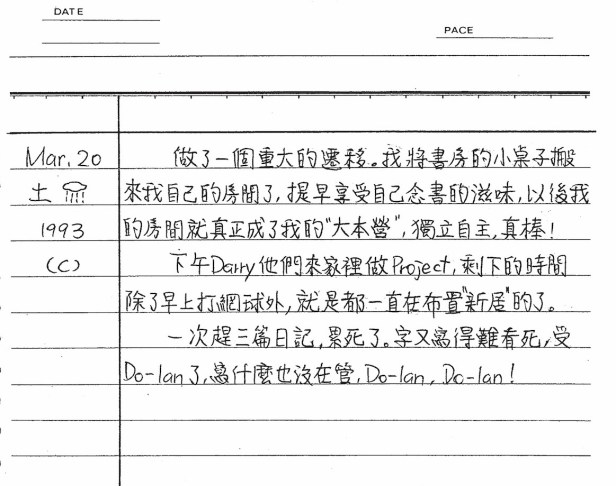 DATE
PACE
Mar. 20 做了一個重大的遷移。我將書房的小桌子搬
土 來我自己的房間了,提早享受自己念書的滋味,以後我
1993 的房間就真正成了我的"大本營",獨立自主,真棒!
(C) 下午Darry他們來家裡做Project,剩下的時間
除了早上打網球外,就是都一直在布置"新居"的了。
一次趕三篇日記,累死了。字又寫得難看死,受
Do-lan了,寫什麼也沒在管,Do-lan, Do-lan!